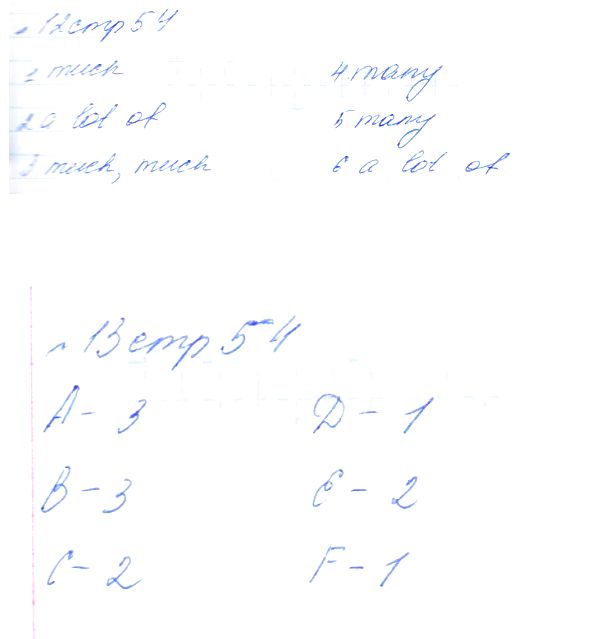 12 стр 54
1 much 4 many
2 a lot of 5 many
3 much, much 6 a lot of
13 стр 54
A - 3 D - 1
B - 3 E - 2
C - 2 F - 1